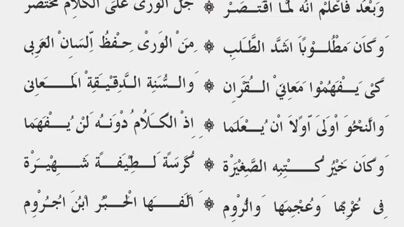 وَبَعْدُ فَاعْلَمْ أَنَّهُ لَمَّا اقْتَصَرْ ۞ جُلُّ الْوَرَى عَلَى الْكَلَامِ الْمُخْتَصَرْ
وَكَانَ مَطْلُوْبًا اَشَدَّ الطَّلَبِ ۞ مِنَ الْوَرَىْ حِفْظُ اللِّسَانِ الْعَرَبِى
كَىْ يَفْهَمُوْا مَعَانِيَ الْقُرْاَنِ ۞ وَالسُّنَةِ الدَّقِيْقَةِ الْمَعَانِى
وَالنَّحْوُ اَوْلَى اَوَّلًا اَنْ يُعْلَمَا ۞ اِذِ الْكَلَامُ دُوْنَهُ لَنْ يُفْهَمَا
وَكَانَ خَيْرُ كُتْبِهِ الصَّغِيْرَةْ ۞ كُرَّسَةً لَطِيْفَةً شَهِيْرَةْ
فِى عُرْبِهَا وَعُجْمِهَا وَالرُّوْمِ ۞ اَلَّفَهَا الْحَبْرُ ابْنُ اجُرُّوْمِ